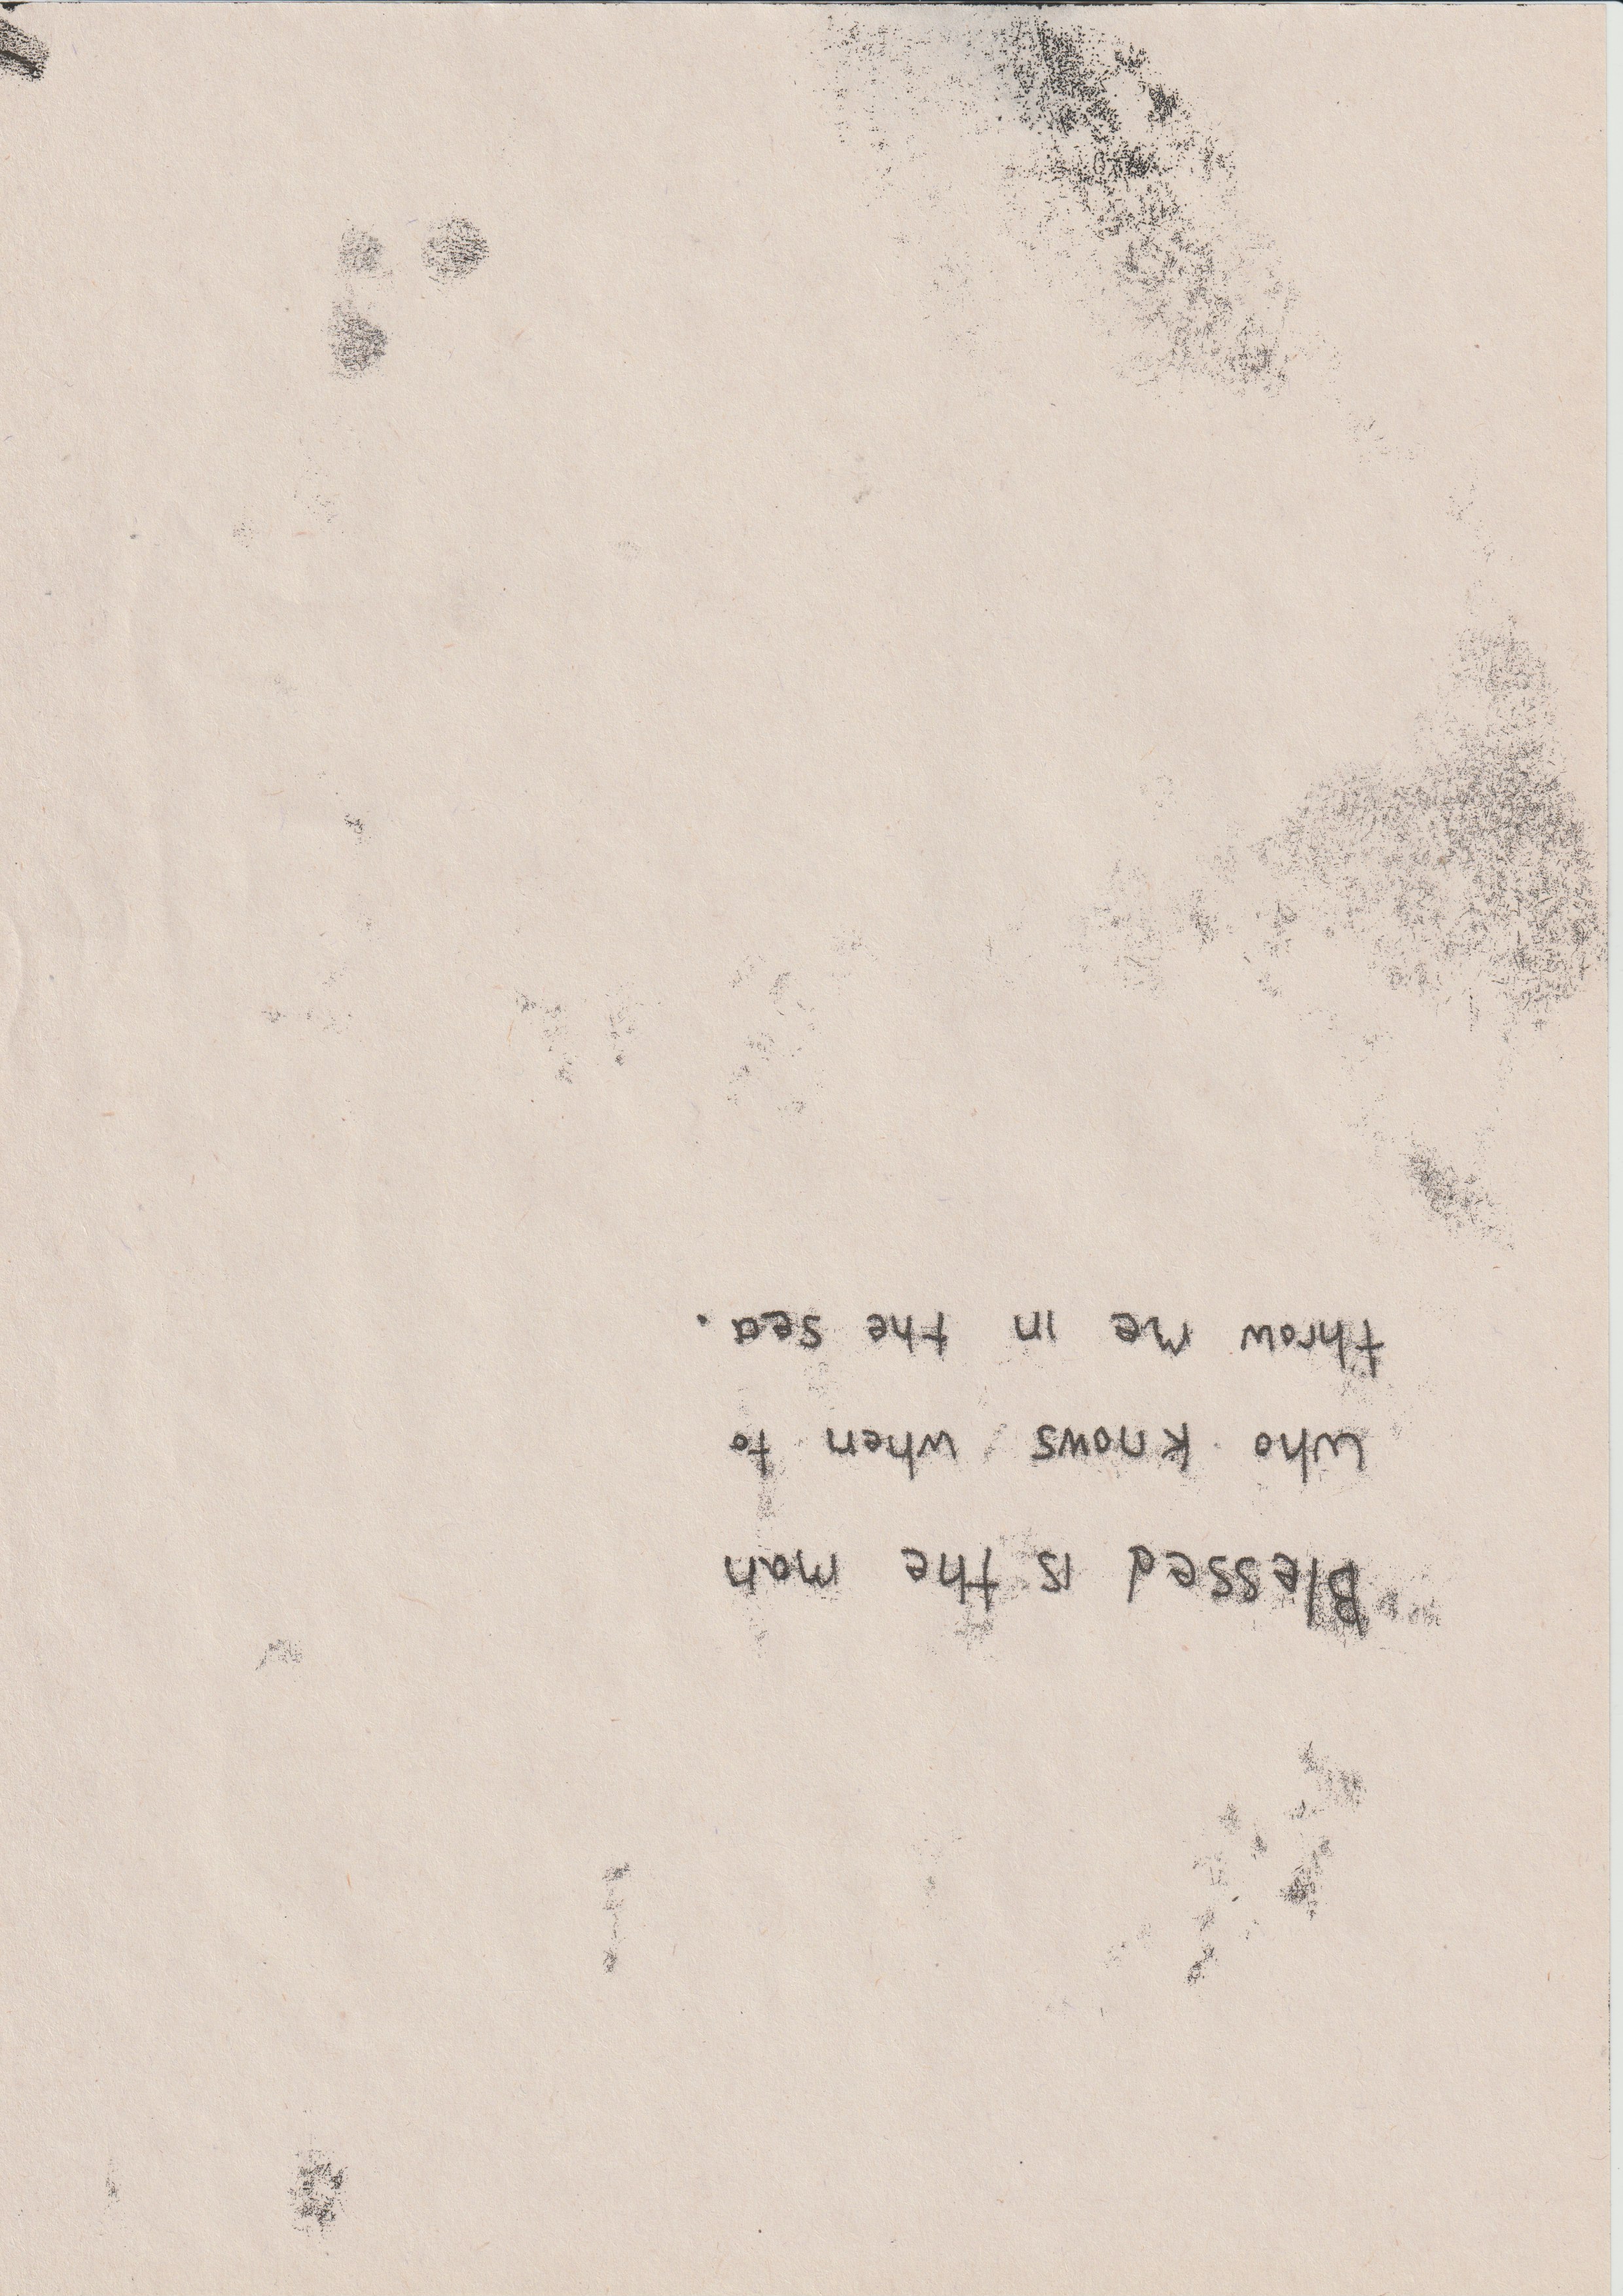 Blessed is the man
who knows when to
throw me in the sea.